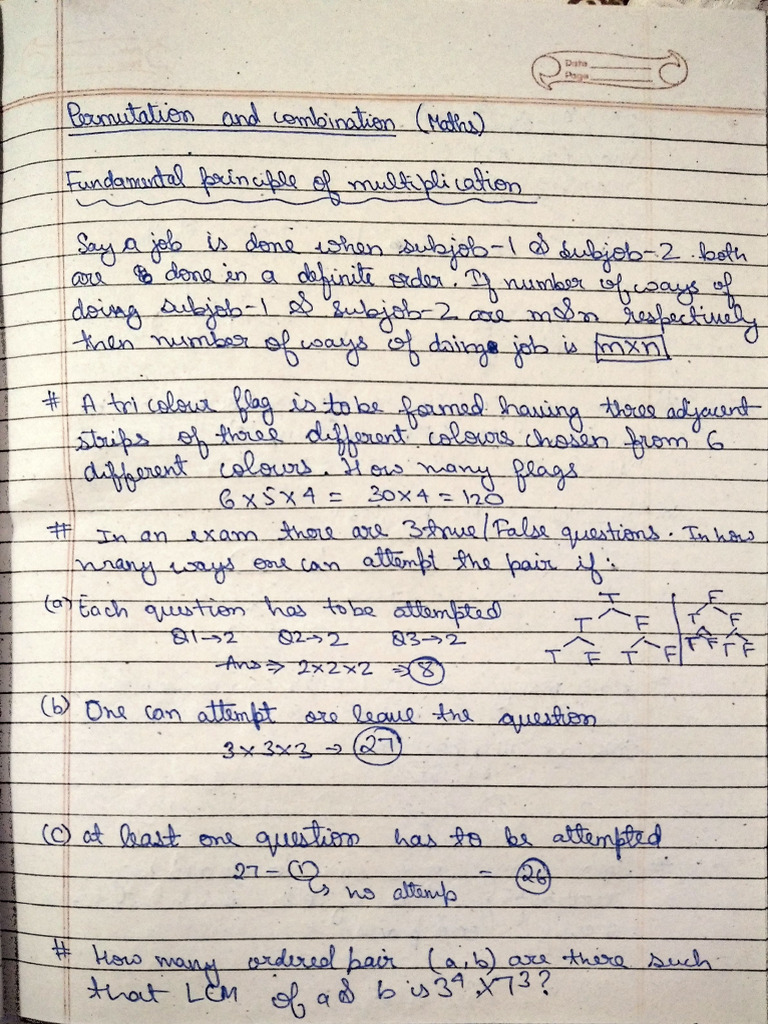 Date
Page
Permutation and combination (Maths)
Fundamental principle of multiplication
Say a job is done when subjob-1 & subjob-2 both
are done in a definite order. If number of ways of
doing subjob-1 & subjob-2 are m&n respectively
then number of ways of doing job is m×n
# A tri colour flag is to be formed having three adjacent
strips of three different colours chosen from 6
different colours. How many flags
6 × 5 × 4 = 30×4 = 120
# In an exam there are 3 true/False questions. In how
many ways one can attempt the pair if:
(a) Each question has to be attempted
Q1→2 Q2→2 Q3→2
Ans ⇒ 2×2×2 ⇒ 8
T F
T F T F
T F T F T F T F
(b) One can attempt ore leave the question
3×3×3 → 27
(C) at least one question has to be attempted
27 - 1 = 26
↳ no attemp
# How many ordered pair (a,b) are there such
that LCM of a & b is 3⁴ × 7³?